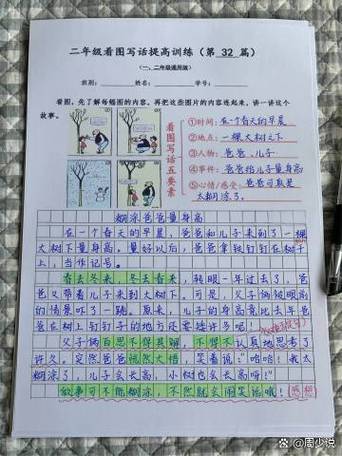 二年级看图写话提高训练（第 32 篇）
（一、二年级通用版）
班别：　姓名：　学号：
看图，先了解每幅图的内容，再把这些图片的内容连起来，讲一讲这个
故事。
看图写话五要素
①时间：在一个春天的早晨
②地点：一棵大树之下
③人物：爸爸、儿子
④事件：爸爸给儿子量身高
⑤心情/感受：爸爸可真是
太糊涂了。
糊涂爸爸量身高
在一个春天的早晨，爸爸和儿子来到了一棵
大树下量身高。量好以后，爸爸拿铁钉钉在树干
上，当作记号。
春去冬来，冬去春来，转眼一年过去了，爸
爸又带着儿子来到大树下。可是，父子俩被眼前
的情景吓了一跳。原来，儿子的身高竟比去年爸
爸在树上钉钉子的地方还要矮许多呢！
父子俩百思不得其解，不得不认真地思考了
许久。突然爸爸恍然大悟，笑着说："哈哈！我太
糊涂了，儿子会长高，小树也会长高啊！"
做事可不能糊涂，不然就会闹笑话哦！
@周少说